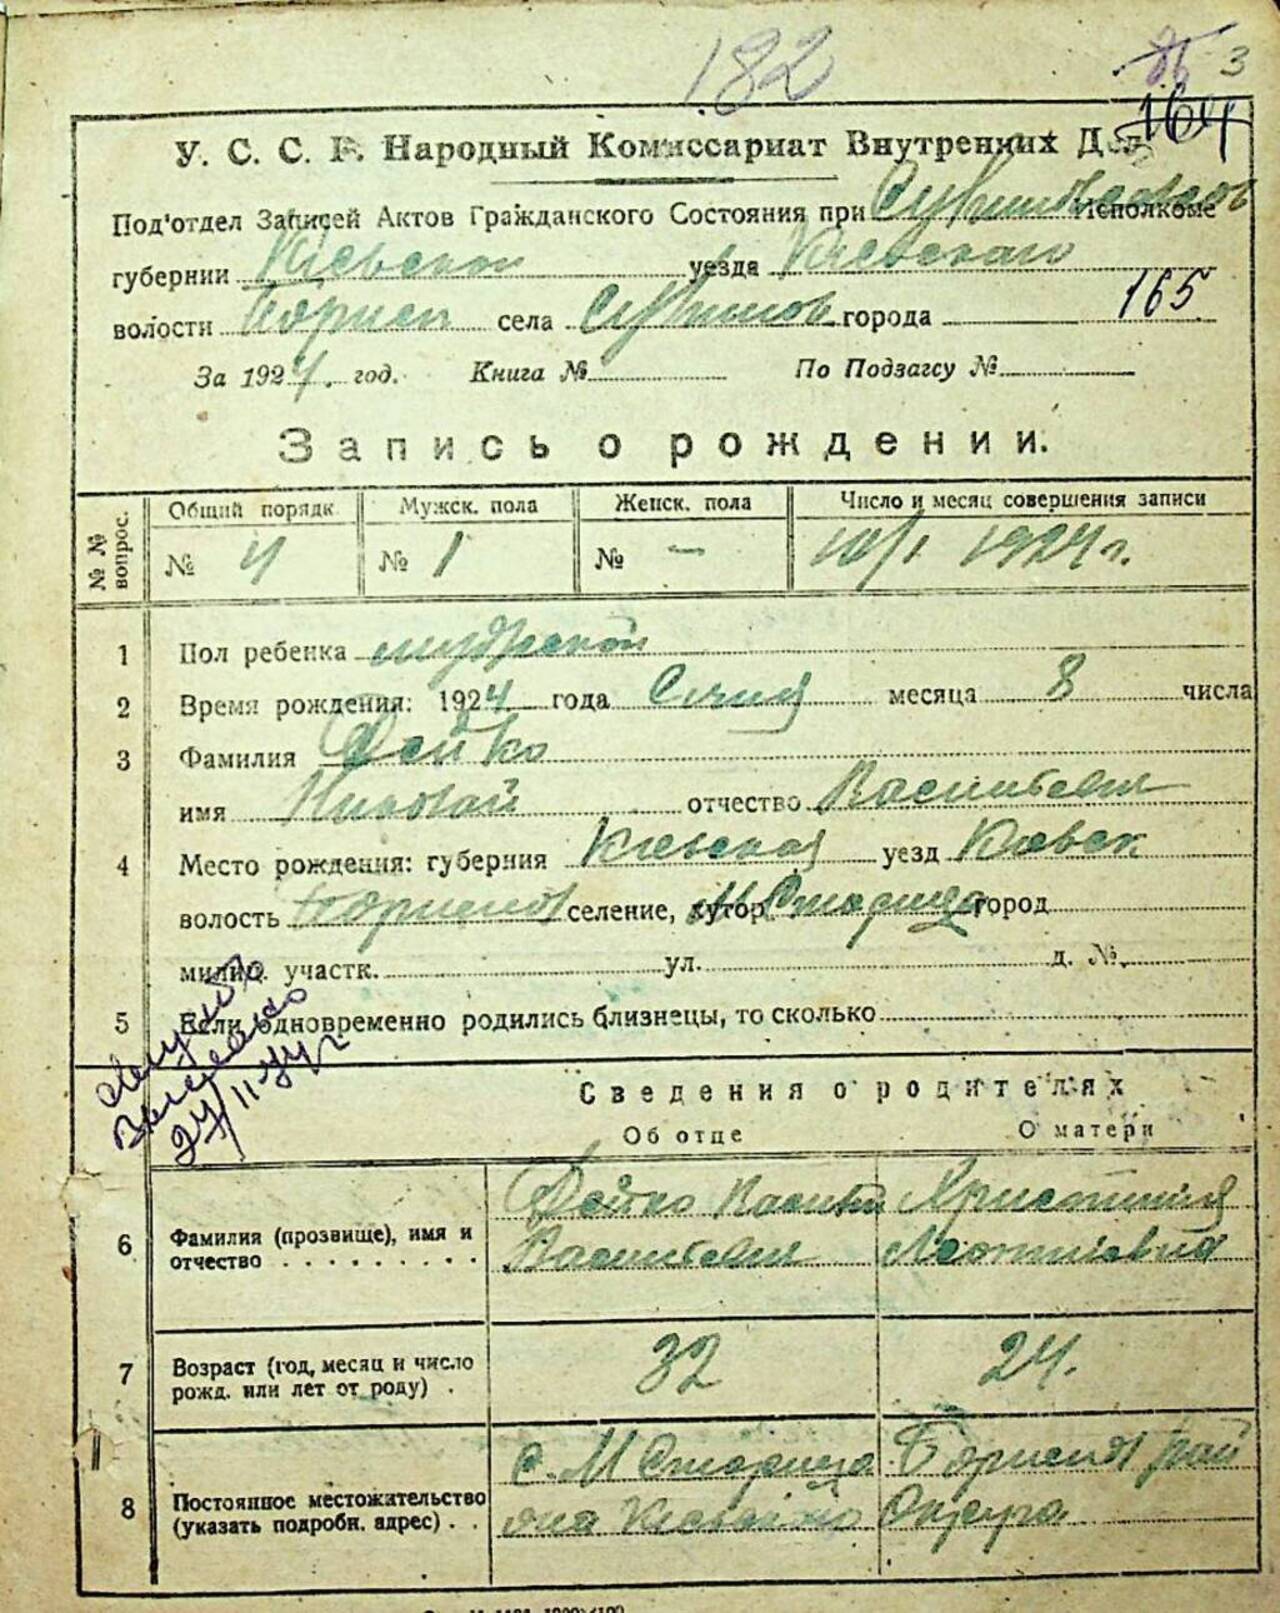 182
3
164
У. С. С. Р. Народный Комиссариат Внутренних Дел
Под'отдел Записей Актов Гражданского Состояния при Исполкоме
губернии Киевской уезда Киевскаго
волости Борисп села города 165
За 1924. год. Книга № По Подзагсу №
Запись о рождении.
№ № вопрос.
Общий порядк. Мужск. пола Женск. пола Число и месяц совершения записи
№ 4 № 1 № — 10/I 1924 г.
1 Пол ребенка мужской
2 Время рождения: 1924 года Січня месяца 8 числа
3 Фамилия Дейко
имя Николай отчество Васильевич
4 Место рождения: губерния Киевская уезд Киевск
волость селение, хутор М Старица город
милиц. участк. ул. д. №
5 Если одновременно родились близнецы, то сколько
24/II
Сведения о родителях
Об отце О матери
6 Фамилия (прозвище), имя и отчество Дейко Васили Христиния
Васильевич
7 Возраст (год, месяц и число рожд. или лет от роду) . 32 24.
8 Постоянное местожительство (указать подробн. адрес) . . с. М Старица рай
она Округа